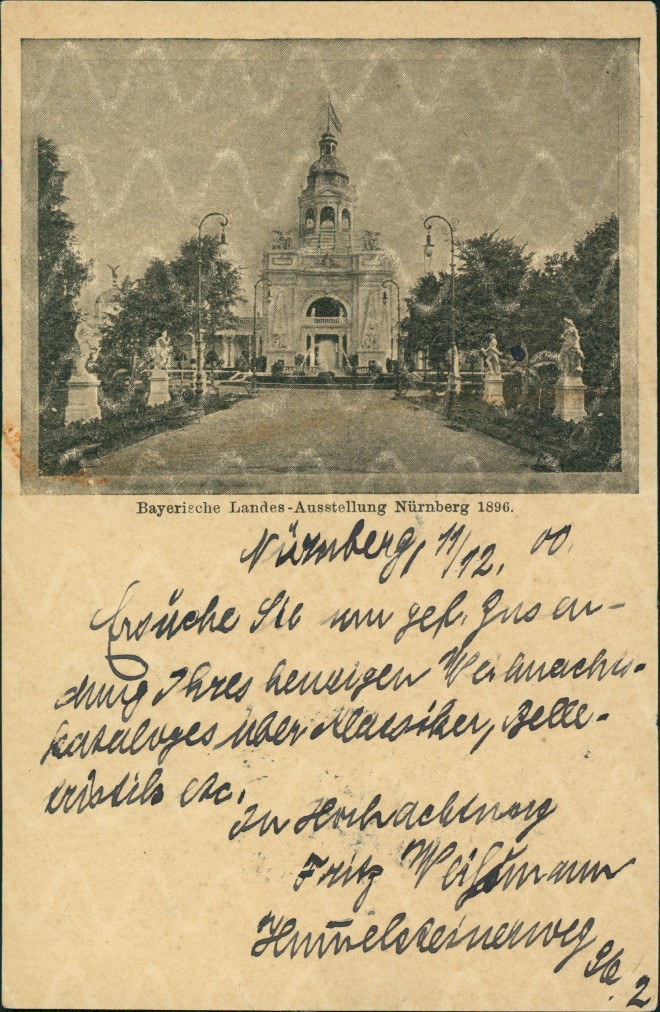 Bayerische Landes-Ausstellung Nürnberg 1896.
Nürnberg, 11/12. 00.
Ersuche Sie um gefl. Zusen-
dung Ihres heurigen Weihnachts-
kataloges über Klassiker, Belle-
tristik etc.
In Hochachtung
Fritz Weißmann
Himmelsteinerweg
2